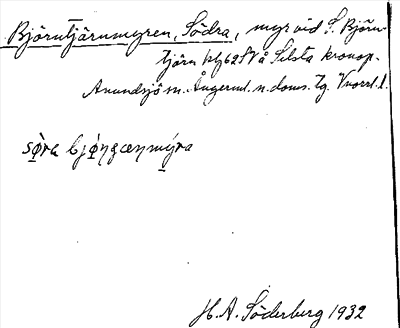 Björntjärnmyren, Södra, myr vid S. Björn-
tjärn hfg 62 SV å Selsta kronop.
Anundsjö sn. Ångerml. n. doms. tg. Vnorrl. l.
sø̀ra bjǿŋɡæŋmýra
H. A. Söderberg 1932